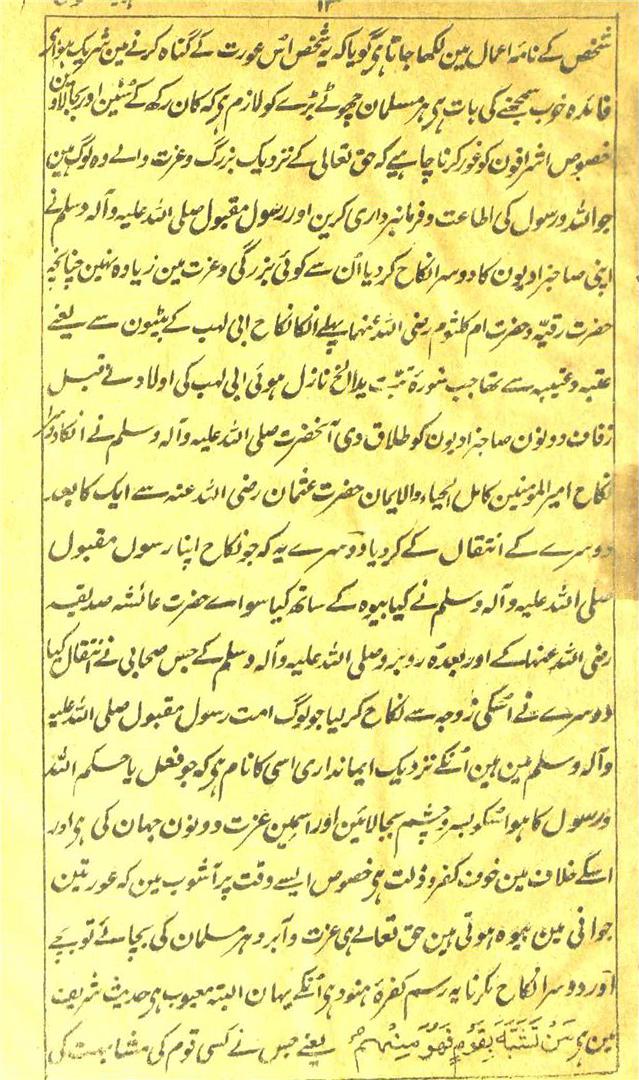 ۱۳
شخص کے نامۂ اعمال مین لکھا جاتا ہی گویا کہ یہ شخص اس عورت کے گناہ کرنے مین شریک ہوا
فائدہ خوب سمجھنے کی بات ہی ہر مسلمان چھوٹے بڑے کو لازم ہی کہ کان رکھ کے سنین اور بجا لاوین
خصوص اشرافون کو غور کرنا چاہیے کہ حق تعالی کے نزدیک بزرگ و عزت والے وہ لوگ ہین
جو اللہ و رسول کی اطاعت و فرمانبرداری کرین اور رسول مقبول صلی اللہ علیہ وآلہ وسلم نے
اپنی صاحبزادیون کا دوسرا نکاح کر دیا اُن سے کوئی بزرگی و عزت مین زیادہ نہین چنانچہ
حضرت رقیہ و حضرت ام کلثوم رضی اللہ عنہما پہلے انکا نکاح ابی لہب کے بیٹیون سے یعنے
عتبہ و عتیبہ سے تھا جب سورۃ تبت یدا الخ نازل ہوئی ابی لہب کی اولاد نے قبل
زفاف دونون صاحبزادیون کو طلاق دی آنحضرت صلی اللہ علیہ وآلہ وسلم نے انکا دوسرا
نکاح امیر المؤمنین کامل الحیاء والایمان حضرت عثمان رضی اللہ عنہ سے ایک کا بعد
دوسرے کے انتقال کے کر دیا دوسرے یہ کہ جو نکاح اپنا رسول مقبول
صلی اللہ علیہ وآلہ وسلم نے کیا بیوہ کے ساتھ کیا سواے حضرت عائشہ صدیقہ
رضی اللہ عنہا کے اور بعدہ روبرو صلی اللہ علیہ وآلہ وسلم کے جس صحابی نے انتقال کیا
دوسرے نے اُسکی زوجہ سے نکاح کر لیا جو لوگ امت رسول مقبول صلی اللہ علیہ
وآلہ وسلم مین ہین اُنکے نزدیک ایمانداری اسی کا نام ہی کہ جو فعل یا حکم اللہ
و رسول کا ہو اُسکو بسر و چشم بجا لائین اور اسمین عزت دونون جہان کی ہی اور
اسکے خلاف مین خوف کفر و ذلت ہی خصوص ایسے وقت پر آشوب مین کہ عورتین
جوانی مین بیوہ ہوتی ہین حق تعالے ہی عزت و آبرو ہر مسلمان کی بچائے تو بچے
اور دوسرا نکاح نکرنا یہ رسم کفرۂ ہنود ہی اُنکے یہان البتہ معیوب ہی حدیث شریف
مین ہی مَنْ تَشَبَّهَ بِقَوْمٍ فَهُوَ مِنْهُمْ یعنے جس نے کسی قوم کی مشابہت کی